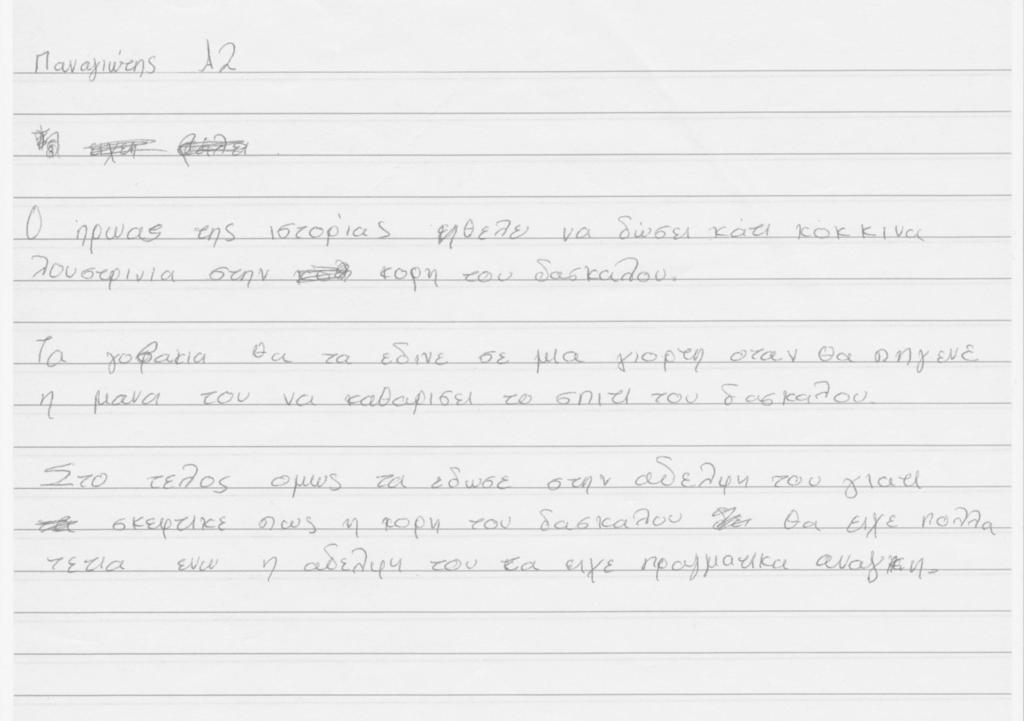 Παναγιώτης Λ2
Ο ήρωας της ιστορίας ηθελε να δώσει κάτι κόκκινα
λουστρινια στην κορη του δασκαλου.
Τα γοβακια θα τα εδινε σε μια γιορτη οταν θα πηγενε
η μανα του να καθαρισει το σπιτι του δασκαλου.
Στο τελος ομως τα εδωσε στην αδελψη του γιατι
σκεφτικε πως η κορη του δασκαλου θα ειχε πολλα
τετια ενω η αδελψη του τα ειχε πραγματικα αναγκη.